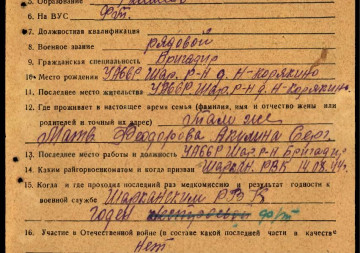 5. Образование
6. На ВУС
7. Должностная квалификация
8. Военное звание рядовой
9. Гражданская специальность Бригадир
10. Место рождения УАССР Шар. р-н д. Н-Корякино
11. Последнее место жительства УАССР Шар. р-н д. Н-Корякино
12. Где проживает в настоящее время семья (фамилия, имя и отчество жены или
родителей и точный их адрес) Там же
Мать Феодорова Акилина Серг
13. Последнее место работы и должность УАССР Шар. р-н Бригадир
14. Каким райгорвоенкоматом и когда призван Шаркан. РВК
15. Когда и где проходил последний раз медкомиссию и результат годности к
военной службе Шарканским РВК
годен
16. Участие в Отечественной войне (в составе какой последней части в качестве
Нет